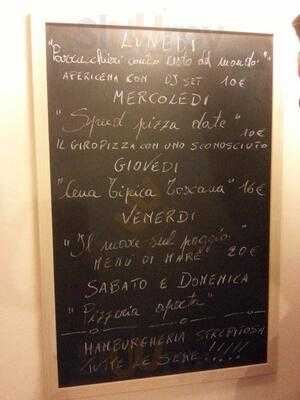 LUNEDI
"Parrucchieri contro resto del mondo"
APERICENA CON DJ SET 10€
MERCOLEDI
"Speed pizza date" 10€
IL GIROPIZZA CON UNO SCONOSCIUTO
GIOVEDI
"Cena Tipica Toscana" 16€
VENERDI
"Il mare sul poggio"
MENU DI MARE 20€
SABATO E DOMENICA
"Pizzeria aperta"
HAMBURGHERIA STREPITOSA
TUTTE LE SERE!!!!!